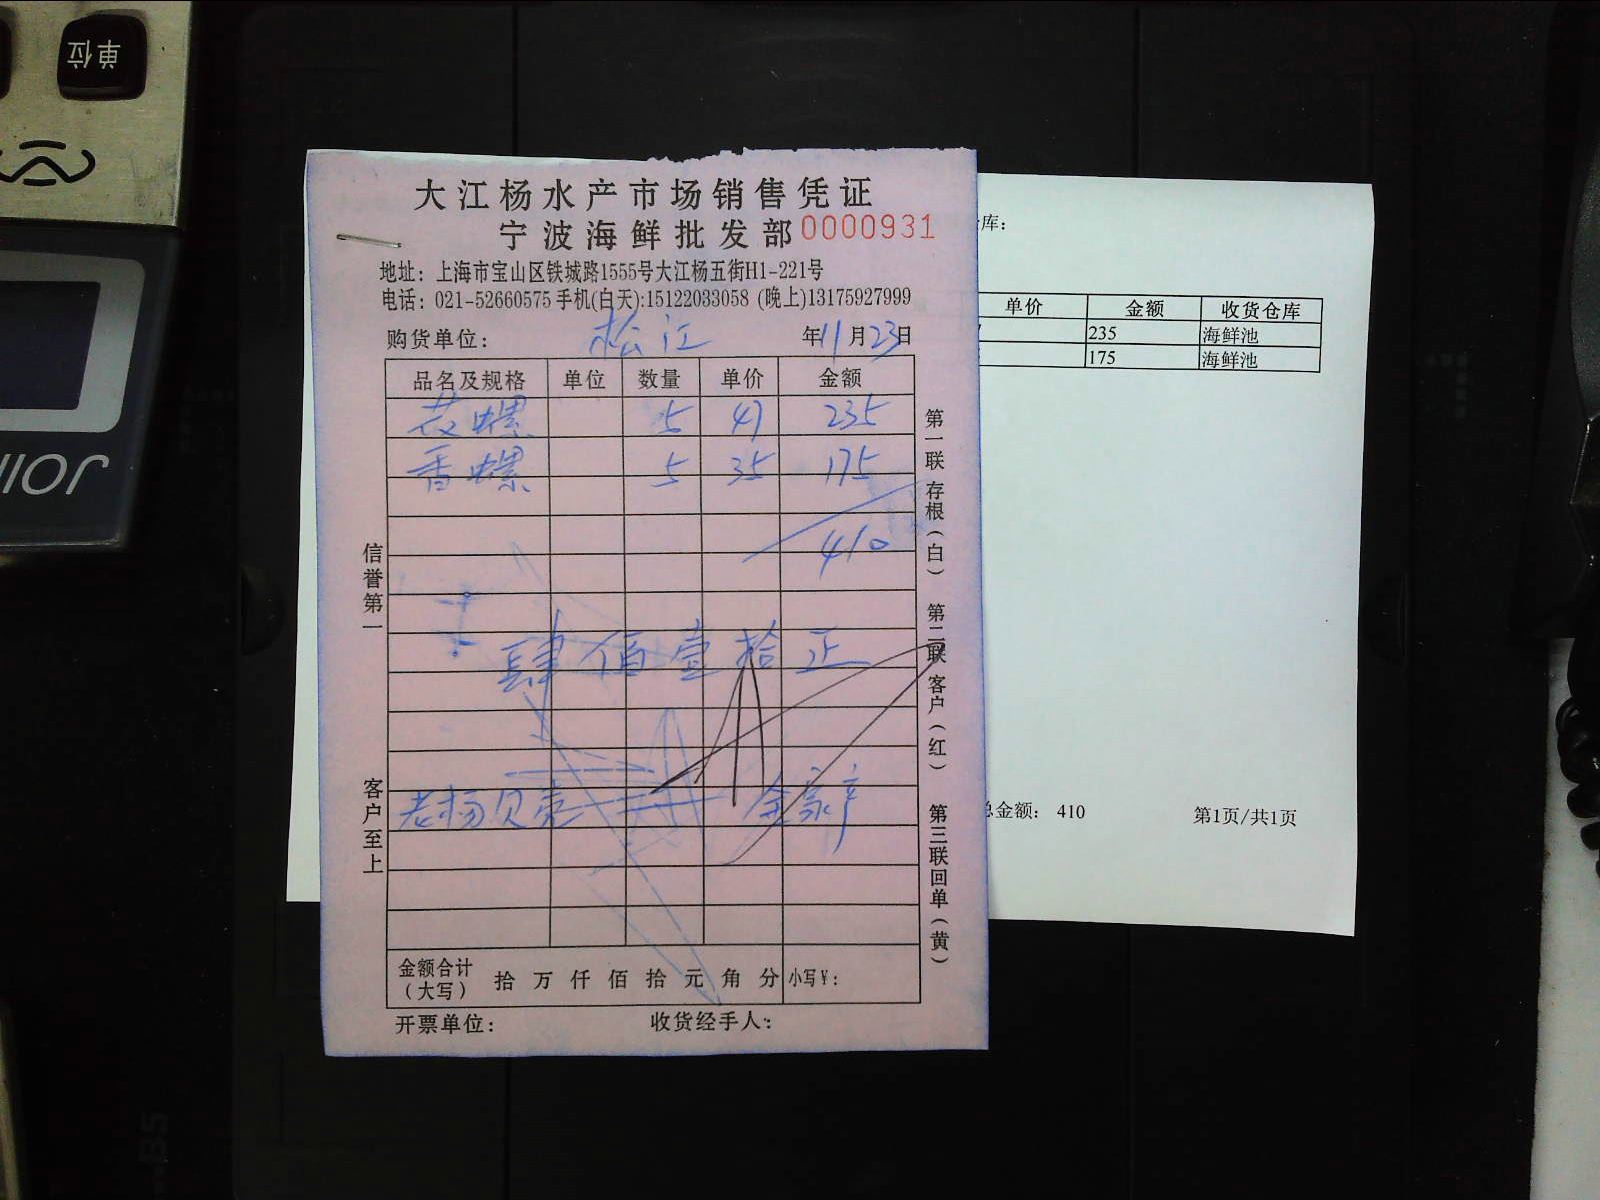 单位
大江杨水产市场销售凭证
宁波海鲜批发部 0000931
地址：上海市宝山区铁城路1555号大江杨五街H1-221号
电话：021-52660575 手机(白天):15122033058 (晚上)13175927999
购货单位： 松江 年11月23日
品名及规格 单位 数量 单价 金额
花螺 5 47 235
香螺 5 35 175
410
肆佰壹拾正
老杨贝壳
金额合计（大写） 拾 万 仟 佰 拾 元 角 分 小写¥：
开票单位： 收货经手人：
信誉第一
客户至上
第一联 存根（白） 第二联 客户（红） 第三联 回单（黄）
库：
单价 金额 收货仓库
235 海鲜池
175 海鲜池
总金额： 410 第1页/共1页